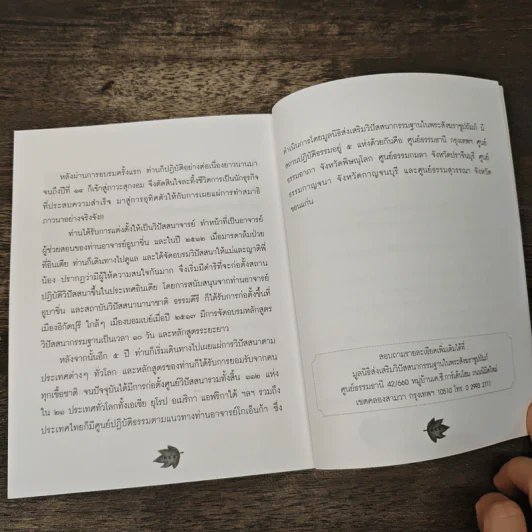 หลังผ่านการอบรมครั้งแรก ท่านก็ปฏิบัติอย่างต่อเนื่องยาวนานมา
จนถึงปีที่ ๑๔ ก็เข้าสู่ภาวะสุกงอม จึงตัดสินใจละทิ้งชีวิตการเป็นนักธุรกิจ
ที่ประสบความสำเร็จ มาสู่การอุทิศตัวให้กับการเผยแผ่การทำสมาธิ
ภาวนาอย่างจริงจัง
ท่านได้รับการแต่งตั้งให้เป็นวิปัสสนาจารย์ ทำหน้าที่เป็นอาจารย์
ผู้ช่วยสอนของท่านอาจารย์อูบาขิ่น และในปี ๒๕๑๒ เมื่อมารดาล้มป่วย
ที่อินเดีย ท่านก็เดินทางไปดูแล และได้จัดอบรมวิปัสสนาให้แม่และญาติพี่
น้อง ปรากฏว่ามีผู้ให้ความสนใจกันมาก จึงเริ่มมีดำริที่จะก่อตั้งสถาน
ปฏิบัติวิปัสสนาขึ้นในประเทศอินเดีย โดยการสนับสนุนจากท่านอาจารย์
อูบาขิ่น และสถาบันวิปัสสนานานาชาติ ธรรมคีรี ก็ได้รับการก่อตั้งขึ้นที่
เมืองอิกัตปุรี ใกล้ๆ เมืองบอมเบย์เมื่อปี ๒๕๑๗ มีการจัดอบรมหลักสูตร
วิปัสสนากรรมฐานเป็นเวลา ๑๐ วัน และหลักสูตรระยะยาว
หลังจากนั้นอีก ๕ ปี ท่านก็เริ่มเดินทางไปเผยแผ่การวิปัสสนาตาม
ประเทศต่างๆ ทั่วโลก และหลักสูตรของท่านก็ได้รับการยอมรับจากคน
ทุกเชื้อชาติ จนปัจจุบันได้มีการก่อตั้งศูนย์วิปัสสนารวมทั้งสิ้น ๑๑๒ แห่ง
ใน ๒๑ ประเทศทั่วโลกทั้งเอเชีย ยุโรป อเมริกา แอฟริกาใต้ ฯลฯ รวมถึง
ประเทศไทยก็มีศูนย์ปฏิบัติธรรมตามแนวทางท่านอาจารย์โกเอ็นก้า ซึ่ง
ดำเนินการโดยมูลนิธิส่งเสริมวิปัสสนากรรมฐานในพระสังฆราชูปถัมภ์ มี
สถานปฏิบัติธรรมอยู่ ๕ แห่งด้วยกันคือ ศูนย์ธรรมธานี กรุงเทพฯ ศูนย์
ธรรมอาภา จังหวัดพิษณุโลก ศูนย์ธรรมกมลา จังหวัดปราจีนบุรี ศูนย์
ธรรมกาญจนา จังหวัดกาญจนบุรี และศูนย์ธรรมสุวรรณา จังหวัด
ขอนแก่น
สอบถามรายละเอียดเพิ่มเติมได้ที่
มูลนิธิส่งเสริมวิปัสสนากรรมฐานในพระสังฆราชูปถัมภ์
ศูนย์ธรรมธานี 42/660 หมู่บ้านเค.ซี.การ์เด้นโฮม ถนนนิมิตใหม่
เขตคลองสามวา กรุงเทพฯ 10510 โทร. 0 2993 2711